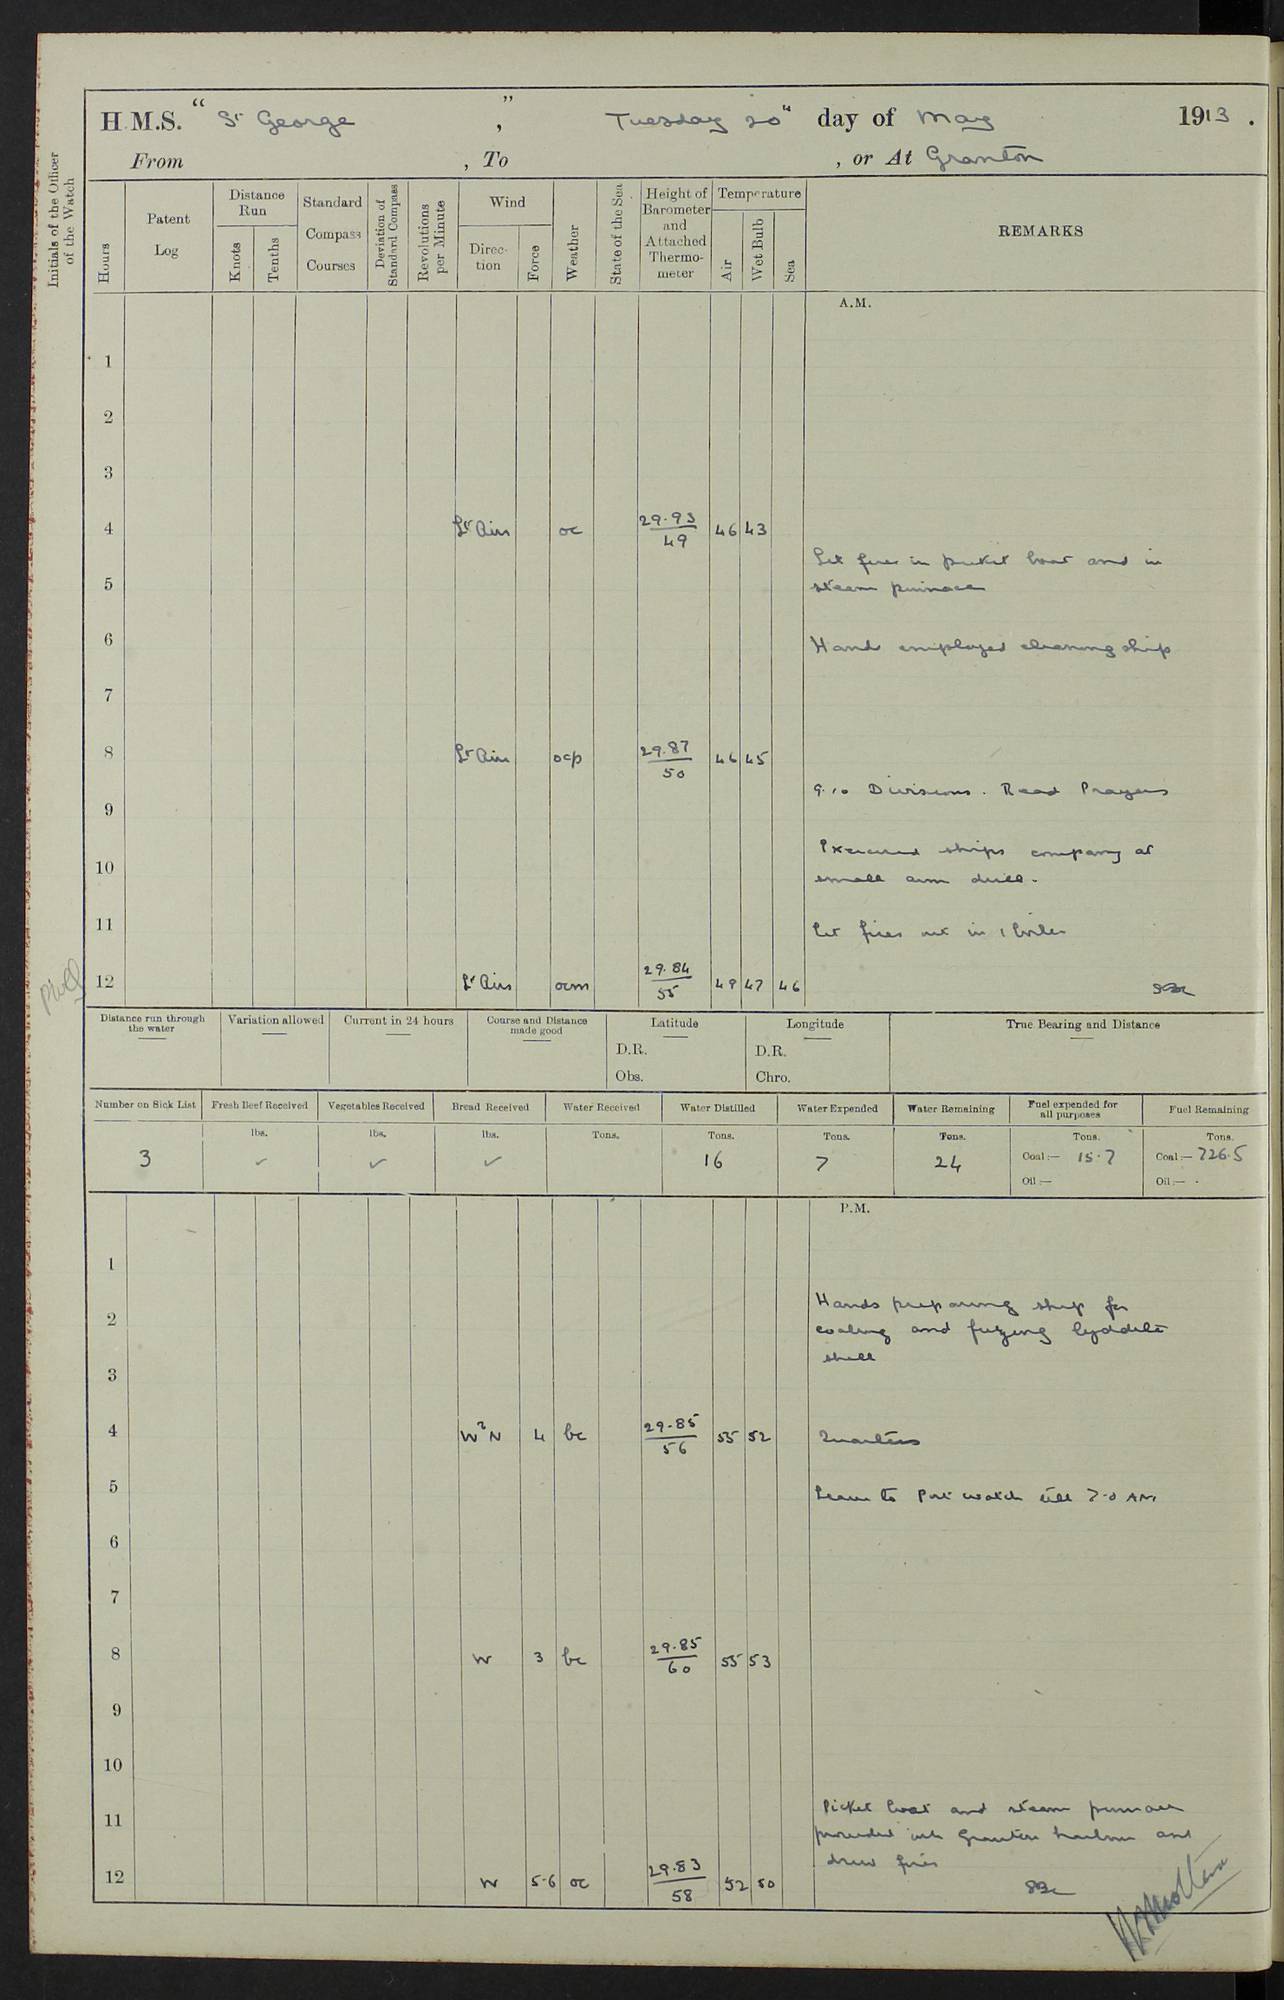 H.M.S. "St George", Tuesday 20th day of May 1913.
From , To , or At Granton
Initials of the Officer of the Watch
Hours
Patent Log
Distance Run
Knots
Tenths
Standard Compass Courses
Deviation of Standard Compass
Revolutions per Minute
Wind
Direction
Force
Weather
State of the Sea
Height of Barometer and Attached Thermometer
Temperature
Air
Wet Bulb
Sea
REMARKS
A.M.
1
2
3
4 Lt Airs oc 29.93/49 46 43
Lit fires in picket boat and in
5 steam pinnace
6 Hands employed cleaning ship
7
8 Lt Airs ocp 29.87/50 46 45
9.10 Divisions. Read Prayers
9
Exercised ships company at
10 small arm drill.
11 Let fires out in 1 boiler
12 Lt Airs ocm 29.84/55 49 47 46
Distance run through the water
Variation allowed
Current in 24 hours
Course and Distance made good
Latitude
D.R.
Obs.
Longitude
D.R.
Chro.
True Bearing and Distance
Number on Sick List
Fresh Beef Received
Vegetables Received
Bread Received
Water Received
Water Distilled
Water Expended
Water Remaining
Fuel expended for all purposes
Fuel Remaining
lbs. lbs. lbs. Tons. Tons. Tons. Tons. Tons. Tons.
3 ✓ ✓ ✓ 16 7 24 Coal:— 15.7 Coal:— 726.5
Oil:— Oil:— -
P.M.
1
Hands preparing ship for
2 coaling and fuzing lyddite
shell
3
4 WbN 4 bc 29.85/56 55 52 Quarters
5 Leave to Port watch till 7-0 AM
6
7
8 W 3 bc 29.85/60 55 53
9
10
Picket boat and steam pinnace
11 proceeded into Granton harbour and
drew fires
12 W 5-6 oc 29.83/58 52 50